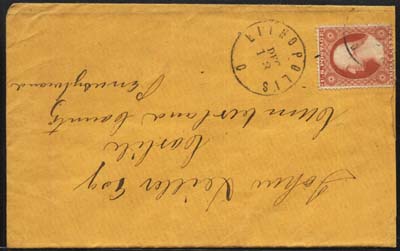 LITHOPOLIS O
DEC
13
John Keiller Esq
Carlile
Cumberland County
Pennsylvania